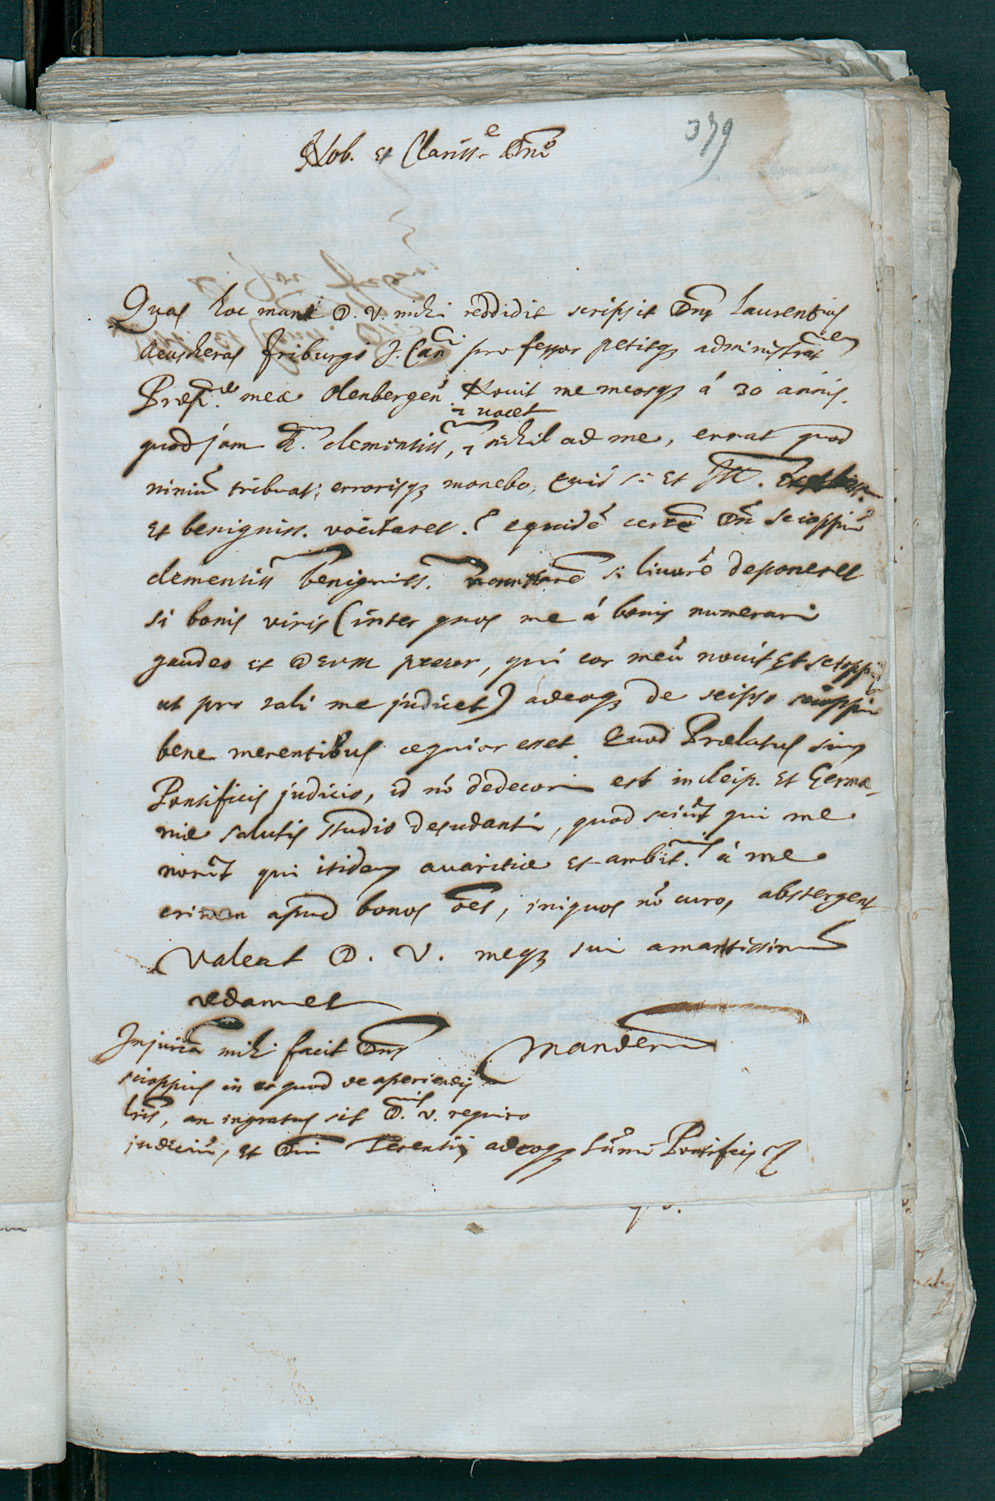 379
Nob. et Clariss.e Dne
Quas hoc mane D. V. mihi reddidit scripsit Dns Laurentius
Friburgi J. Can. professor petitq administratorem
Præp. meæ Olenbergen. Novit me meosq á 30 annis.
vocet
quod jam clementiss, nihil ad me, errat quod
nimiũ tribuat; errorisq monebo, Quid si et
et benigniss. vocitaret. equidẽ certe Dñ Scioppiũ
clementiss benigniss. si livorẽ deponeret
si bonis viris (inter quos me á bonis numerari
gaudeo et DEUM precor, qui cor meũ novit et Sciopp
ut pro tali me judicet) adeoq de seipso
bene merentibus æquior esset. Quod Prælatus sim
Pontificis judicio, id nõ dedecori est incleip. et Germa-
niæ salutis studio desudanti, quod sciũt qui me
norũt qui itidem avaritiæ et ambit. á me
crimen apud bonos ões, iniquos nõ curo, abstergent
Valeat D. V. meq sui amantissimũ
redamet
Injuriã mihi facit Dns
Scioppius in eo quod de aperiendis
lris, an ingratus sit D. V. requiro
judiciũ, et Dni Terentii adeoq sũmi Pontificis